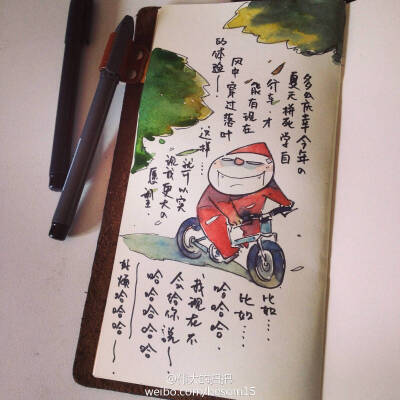 多么庆幸今年の
夏天拼死学自
行车,才
能有现在
风中穿过落叶
的体验~
这样…
就可以实
现我更大の
愿望
比如…
比如…
哈哈哈,
我现在不
会给你说~
哈哈哈哈哈
烦哈哈哈哈~
weibo.com/besom15